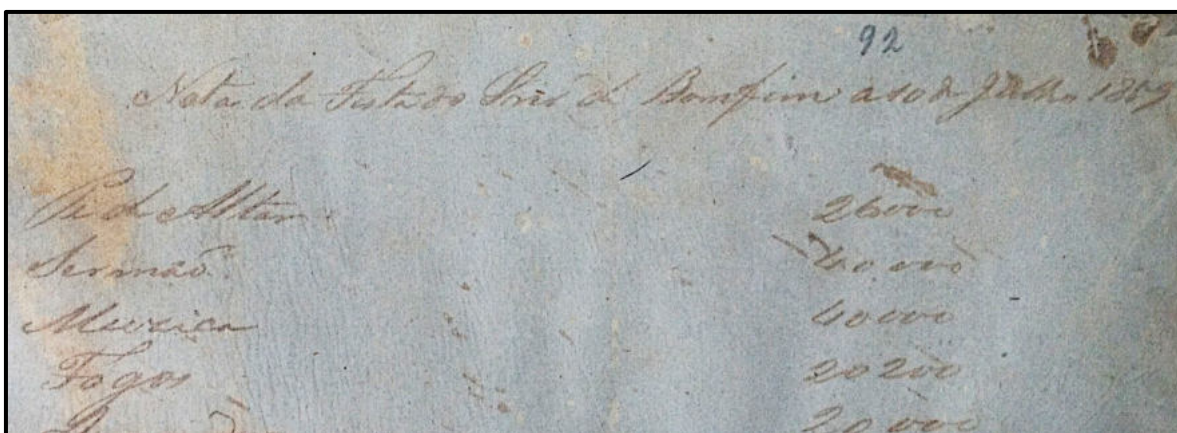 92
Nota da Festa do Snr do Bomfim a 10 de Julho 1859
Pé de Altar 26000
Sermaõ 40000
Muzica 40000
Fogos 20200
20000